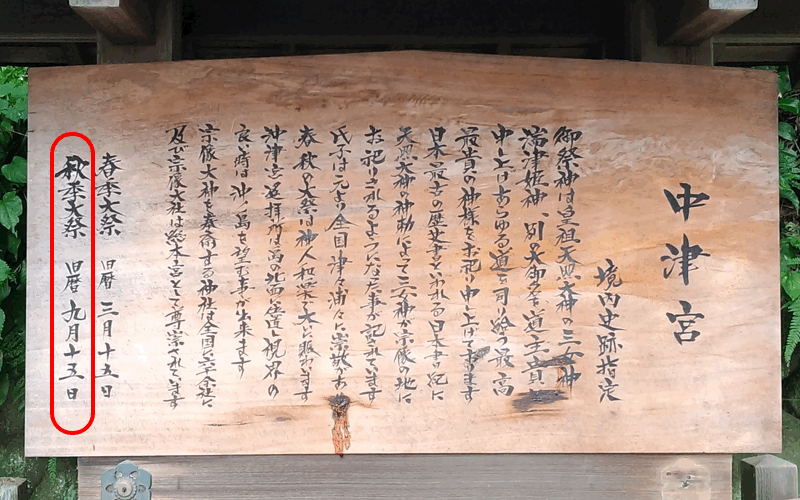 中津宮
境内史跡指定
御祭神は皇祖天照大神の三女神
湍津姫神、別の大御名を道主貴
申し上げあらゆる道を司り給う最高
最貴の神様をお祀り申し上げております
日本最古の歴史書といわれる日本書紀に
天照大神の神勅によって三女神が宗像の地に
お祀りされるようになった事が記されています
氏子は元より全国津々浦々に崇敬があり
春秋の大祭は神人和楽で大い賑わいます
沖津宮遙拝所は島の北西に在り視界の
良い時は沖ノ島を望む事が出来ます
宗像大神を奉斎する神社は全国に六千余社に
及び宗像大社は総本宮として尊崇されています
春季大祭 旧暦 三月十五日
秋季大祭 旧暦 九月十五日